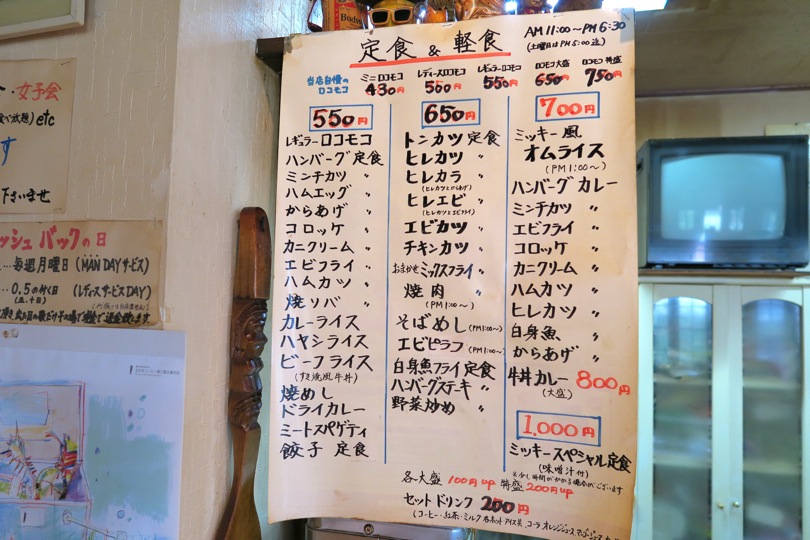 定食 & 軽食
AM 11:00〜PM 6:30
(土曜日はPM 5:00迄)
当店自慢の
ロコモコ
ミニロコモコ
430円
レディースロコモコ
500円
レギュラーロコモコ
550円
ロコモコ大盛
650円
ロコモコ特盛
750円
550円
レギュラーロコモコ
ハンバーグ定食
ミンチカツ 〃
ハムエッグ 〃
からあげ 〃
コロッケ 〃
カニクリーム 〃
エビフライ 〃
ハムカツ 〃
焼ソバ 〃
カレーライス
ハヤシライス
ビーフライス
(すき焼風牛丼)
焼めし
ドライカレー
ミートスパゲティ
餃子 定食
650円
トンカツ定食
ヒレカツ 〃
ヒレカラ 〃
(ヒレカツとからあげ)
ヒレエビ 〃
(ヒレカツとエビフライ)
エビカツ 〃
チキンカツ 〃
おまかせミックスフライ 〃
焼肉 〃
(PM 1:00〜)
そばめし(PM 1:00〜)
エビピラフ(PM 1:00〜)
白身魚フライ定食
ハンバーグステーキ 〃
野菜炒め 〃
700円
ミッキー風
オムライス
(PM 1:00〜)
ハンバーグカレー
ミンチカツ 〃
エビフライ 〃
コロッケ 〃
カニクリーム 〃
ハムカツ 〃
ヒレカツ 〃
白身魚 〃
からあげ 〃
牛丼カレー 800円
(大盛)
1,000円
ミッキースペシャル定食
(味噌汁付)
※少し時間がかかる場合がございます
各大盛 100円up 特盛 200円up
セットドリンク 200円
(コーヒー・紅茶・ミルク 各ホットアイス共 コーラ オレンジジュース
女子会
etc
下さいませ
ッシュバックの日
…毎週月曜日(MAN DAYサービス)
…0.5の付く日(レディスサービスDAY)
(五.十日)